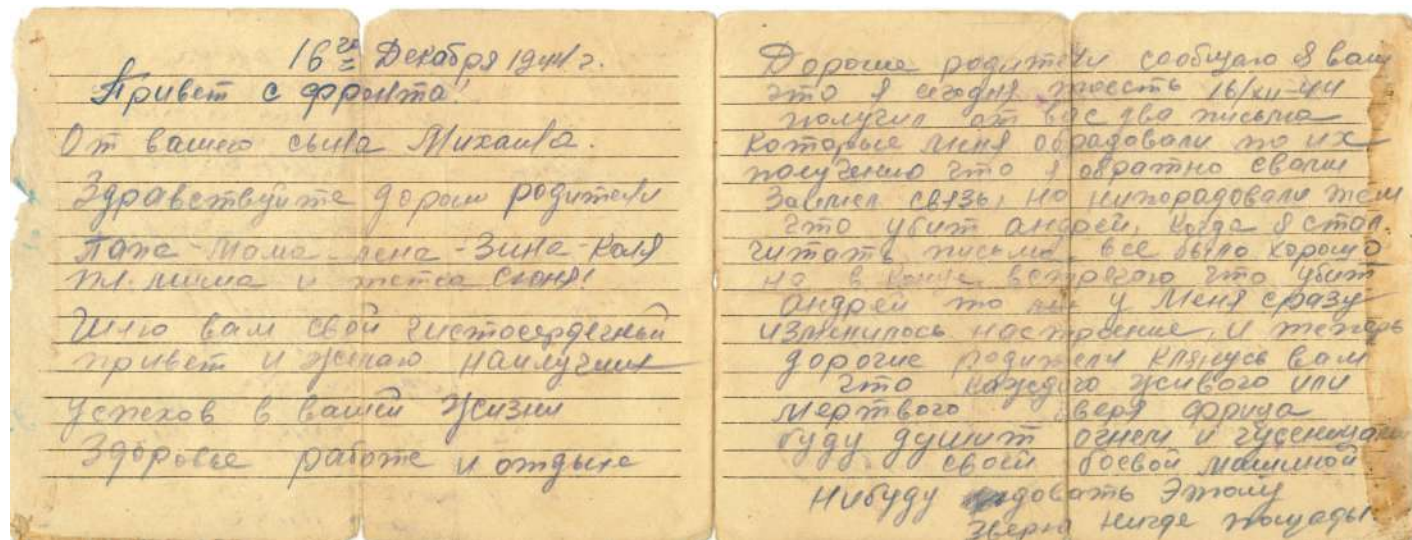 16го Декабря 1944 г.
Привет с фронта!
От вашего сына Михаила.
Здравствуйте дороги родители
Папа - Мама - Лена - Зина - Коля
и тетса Сюня!
Шлю вам свой чистосердечный
привет и желаю наилучших
успехов в вашей жизни
Здоровье работе и отдыхе
Дорогие родители сообщаю я вам
что я сегодня 16/XII-44
получил от вас два письма
Которые меня обрадовали по их
получению что я обратно с вами
Завмел связь, но нипорадовали тем
что убит андрей, когда я стал.
читать письмо все было хорошо
но в конце встречаю что убит
андрей то у меня сразу
изменилось настроение, и теперь
дорогие родители клянусь вам
что каждого живого или
мертвого зверя фрица
буду душит огнем и гусеницами
своей боевой машиной
Нибуду давать этому
зверю нигде пощады.